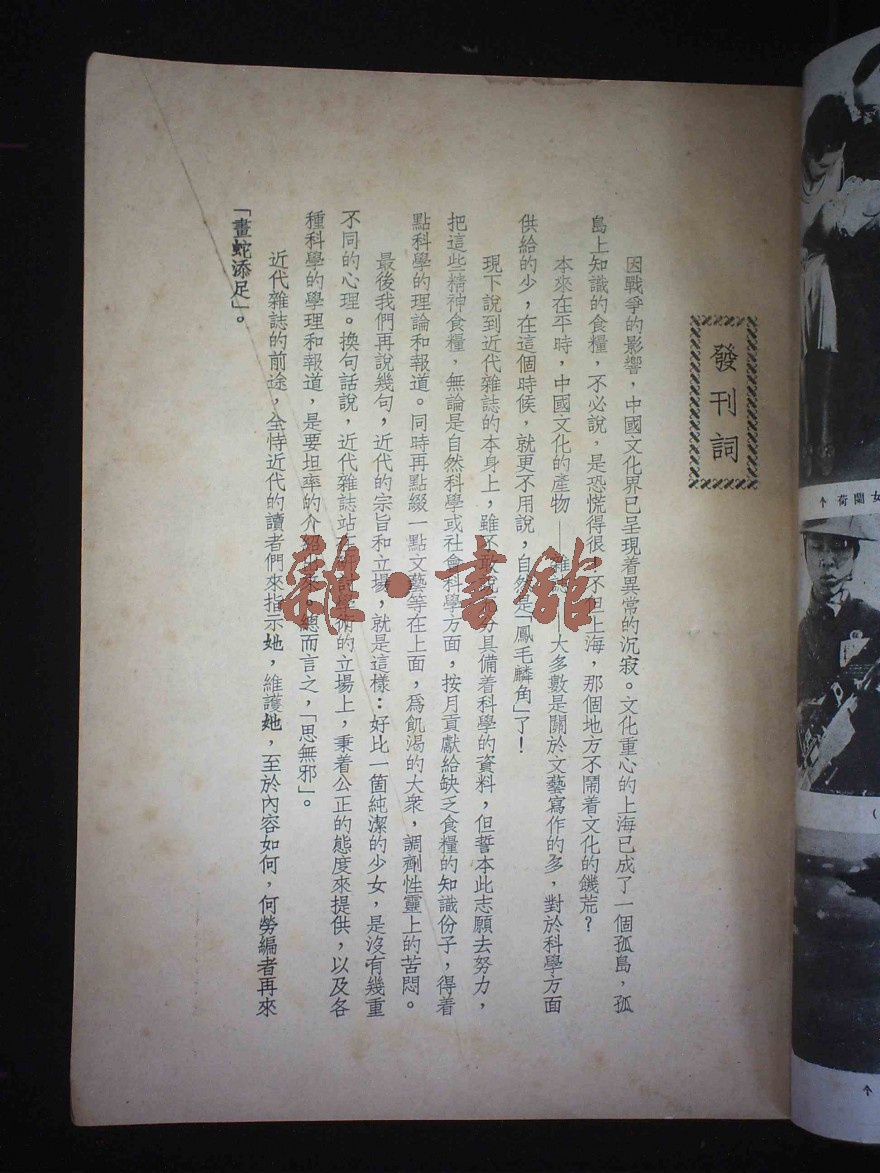 發刊詞
因戰爭的影響，中國文化界已呈現着異常的沉寂。文化重心的上海已成了一個孤島，孤
島上知識的食糧，不必說，是恐慌得很，不但上海，那個地方不鬧着文化的饑荒？
本來在平時，中國文化的產物——雜誌——大多數是關於文藝寫作的多，對於科學方面
供給的少，在這個時候，就更不用說，自然是「鳳毛麟角」了！
現下說到近代雜誌的本身上，雖不敢說十分具備着科學的資料，但誓本此志願去努力，
把這些精神食糧，無論是自然科學或社會科學方面，按月貢獻給缺乏食糧的知識份子，得着
點科學的理論和報道。同時再點綴一點文藝等在上面，爲飢渴的大衆，調劑性靈上的苦悶。
最後我們再說幾句，近代的宗旨和立場，就是這樣：好比一箇純潔的少女，是沒有幾重
不同的心理。換句話說，近代雜誌站在術的立場上，秉着公正的態度來提供，以及各
種科學的學理和報道，是要坦率的介紹。總而言之，「思無邪」。
近代雜誌的前途，全恃近代的讀者們來指示她，維護她，至於內容如何，何勞編者再來
「畫蛇添足」。
雜·書館
女蘭荷↑
（
↑